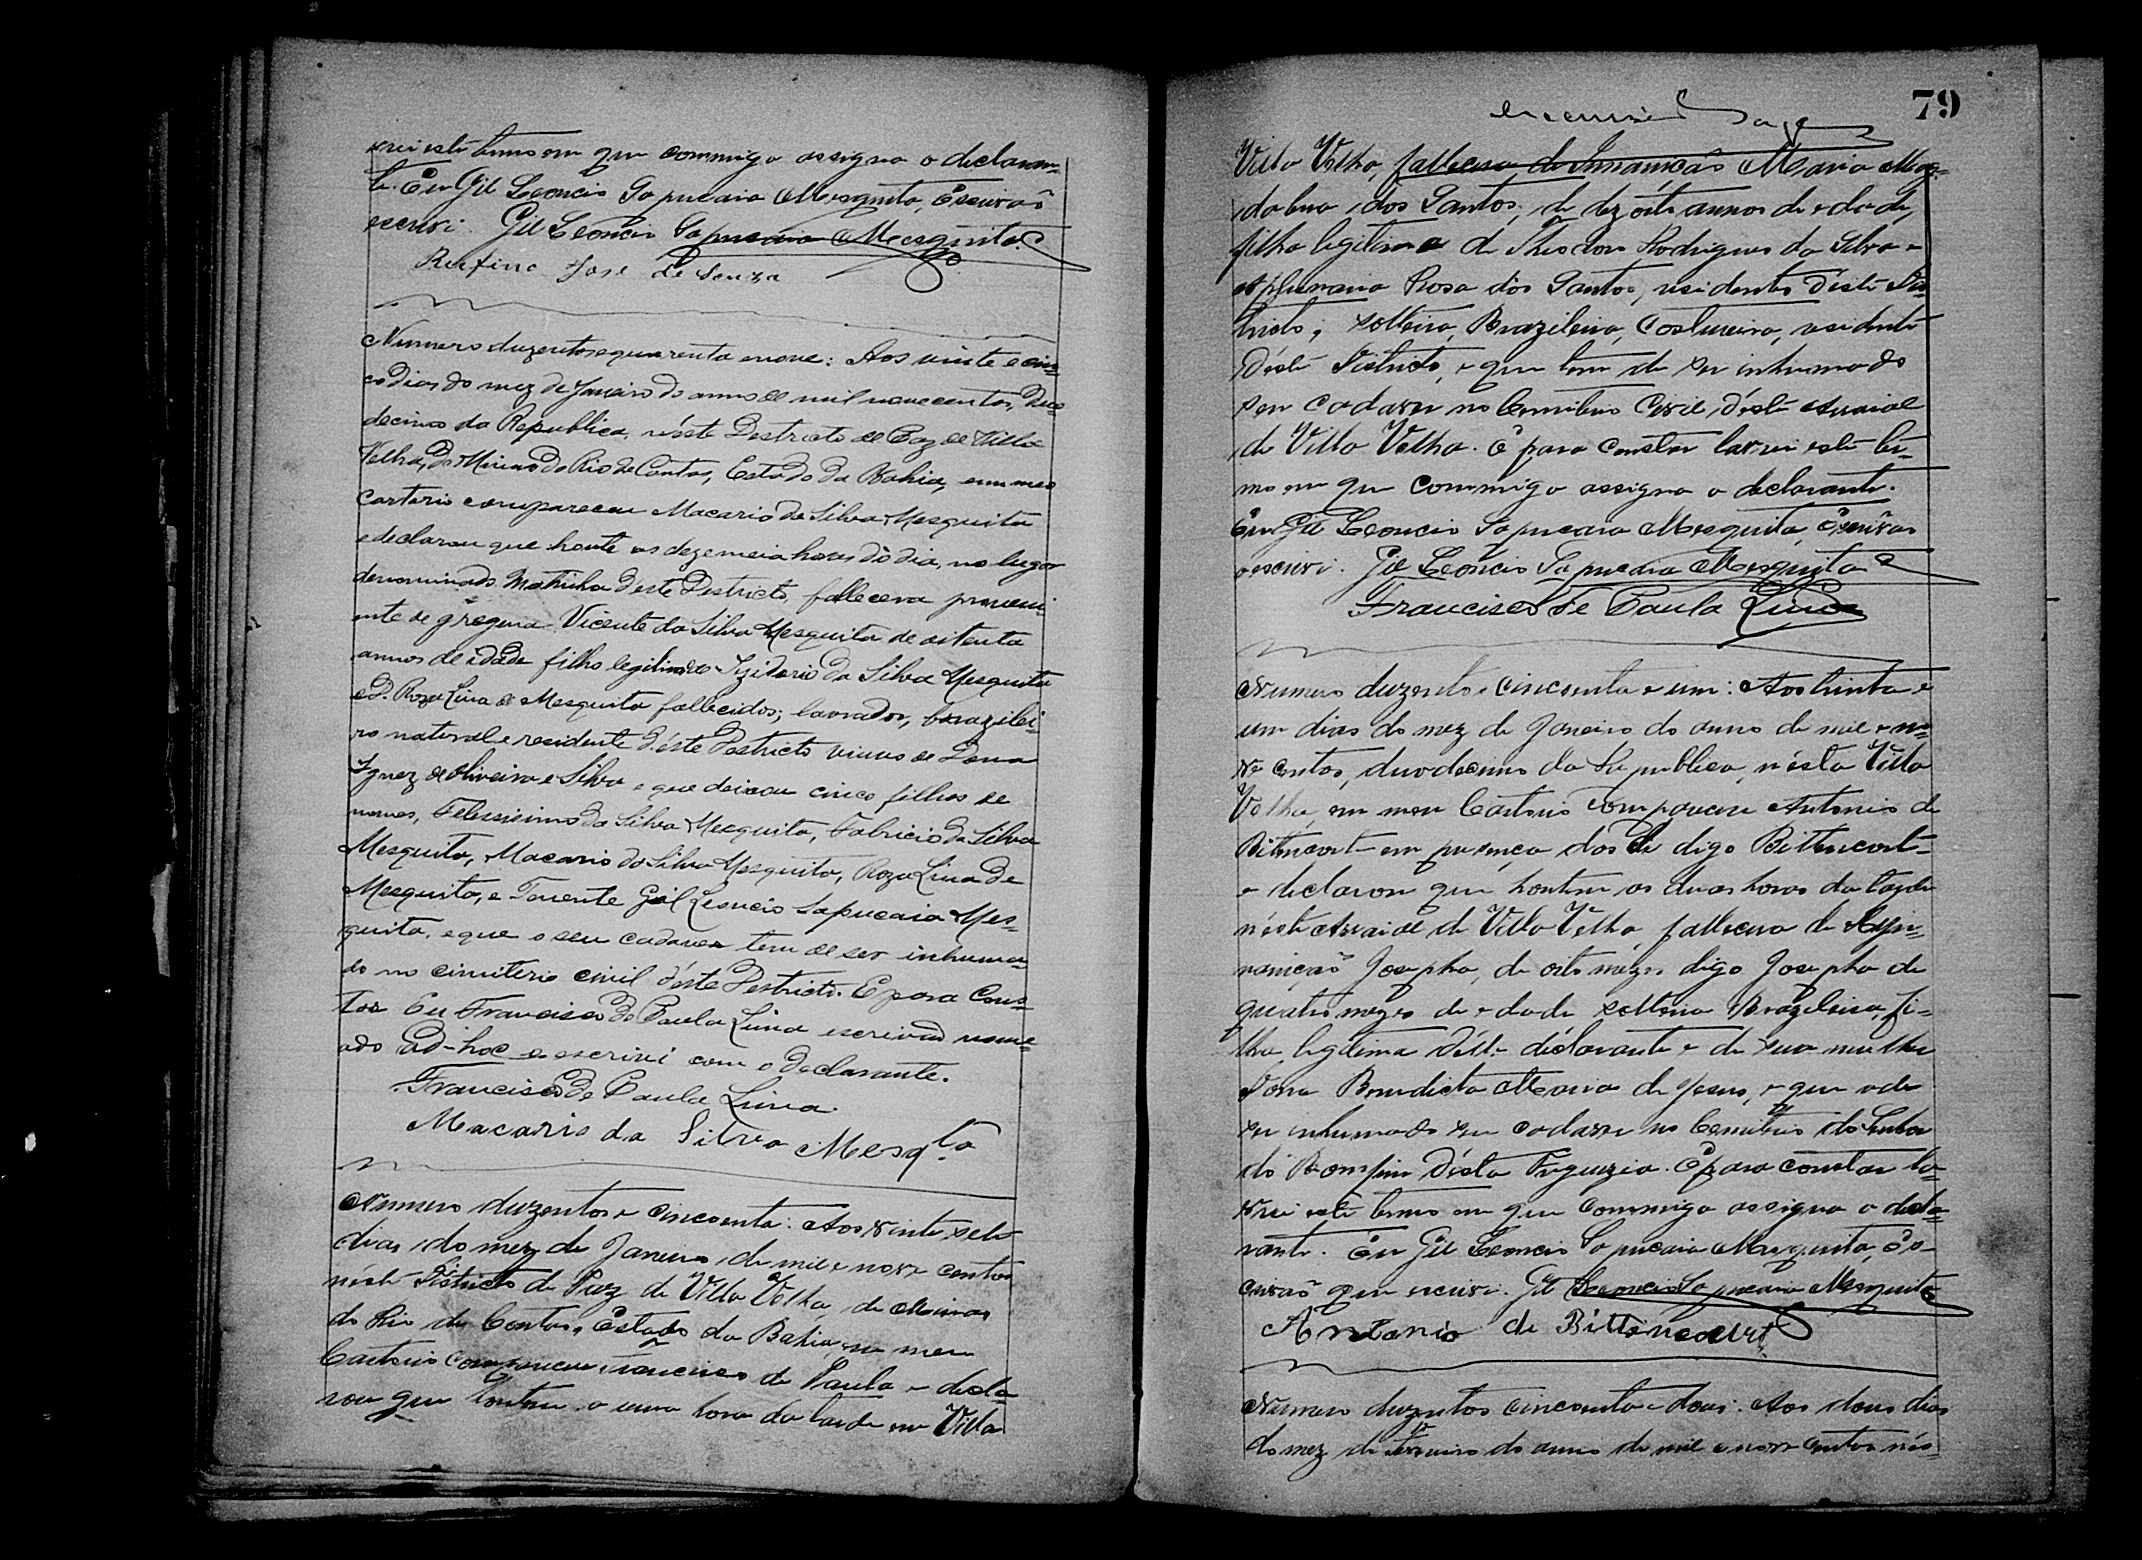 vrei este termo em que commigo assigna o declaran-
te. Eu Gil Leoncio Sapucaia Mesquita, Escrivaõ
escrevi. Gil Leoncio Sapucaia Mesquita
Rufino José de Souza
Numero duzentos e quarenta e nove: Aos vinte e cin-
co dias do mez de Janeiro do anno de mil nove centos, duo
decimo da Republica, n'éste Destricto de Paz de Villa
Velha, de Minas do Rio de Contas, Estado da Bahia, em meu
Cartorio compareceu Macario da Silva Mesquita
e declarou que honte as dez e meia horas do dia, no lugar
denominado Matinha deste Destricto, fallecera proveni-
ente de Vicente da Silva Mesquita de oitenta
annos de idade filho legitimo de Izidorio da Silva Mesquita
e D. Roza Lina de Mesquita fallecidos; lavrador, brazilei-
ro natural e residente d'éste Destricto viuvo de Dona
Ignez de Oliveira e Silva e que deixou cinco filhos de
nomes, Felessimo da Silva Mesquita, Fabricio da Silva
Mesquita, Macario da Silva Mesquita, Roza Lina de
Mesquita, e Tenente Gil Leoncio Sapucaia Mes-
quita, e que o seu cadaver tem de ser inhuma-
do no cimiterio civil d'éste Destricto. E para Cons-
tar Eu Francisco de Paula Lima escrivaõ nome-
ado Ad-hoc o escrivi com o declarante.
Francisco de Paula Lima
Macario da Silva Mesqta
Numero duzentos e cincoenta: Aos vinte sete
dias do mez de Janeiro de mil e nove centos
néste Districto de Paz de Villa Velha, de Minas
do Rio de Contas, Estado da Bahia, em meu
Cartorio compareceu Francisco de Paula e decla-
rou que hontem a uma hora da tarde na Villa
79
Villa Velha, falleceu de Innaniçaõ Maria Mag-
dalena dos Santos, de dezoito annos de edade,
filha legitima de Theodoro Rodrigues da Silva e
Rosa dos Santos, residentes d'este Dis-
tricto; solteira, Brazileira, Costureira, residente
d'éste Districto, e que tem de ser inhumado
seu cadaver no Cemiterio Civil d'éste Arraial
de Villa Velha. E para constar lavrei este ter-
mo em que commigo assigna o declarante.
Eu Gil Leoncio Sapucaia Mesquita, Escrivaõ
o escrivi. Gil Leoncio Sapucaia Mesquita
Francisco de Paula Lima
Numero duzentos e cincoenta e um: Aos trinta e
um dias do mez de Janeiro do anno de mil e no-
ve centos, duodecimo da Republica, n'ésta Villa
Velha, em meu Cartorio compareceu Antonio de
Bitencort em presença dos de digo Bittencort
e declarou que hontem as duas horas da tarde
n'éste Arraial de Villa Velha falleceu de
Josepha, de oito mezes digo Josepha de
quatro mezes de edade solteira Brazileira, fi-
lha legitima d'elle declarante e de sua mulher
Dona Benedicta Maria de Jesus, e que vae
ser inhumado seu cadaver no Cemiterio do Senhor
do Bomfim d'ésta Freguezia. E para constar la-
vrei este termo em que commigo assigna o decla-
rante. Eu Gil Leoncio Sapucaia Mesquita, Es-
crivaõ que escrivi. Gil Leoncio Sapucaia Mesquita
Antonio de Bittencourt
Numero duzentos cincoenta e dous: Aos dous dias
do mez de Fevereiro do anno de mil e nove centos nés-